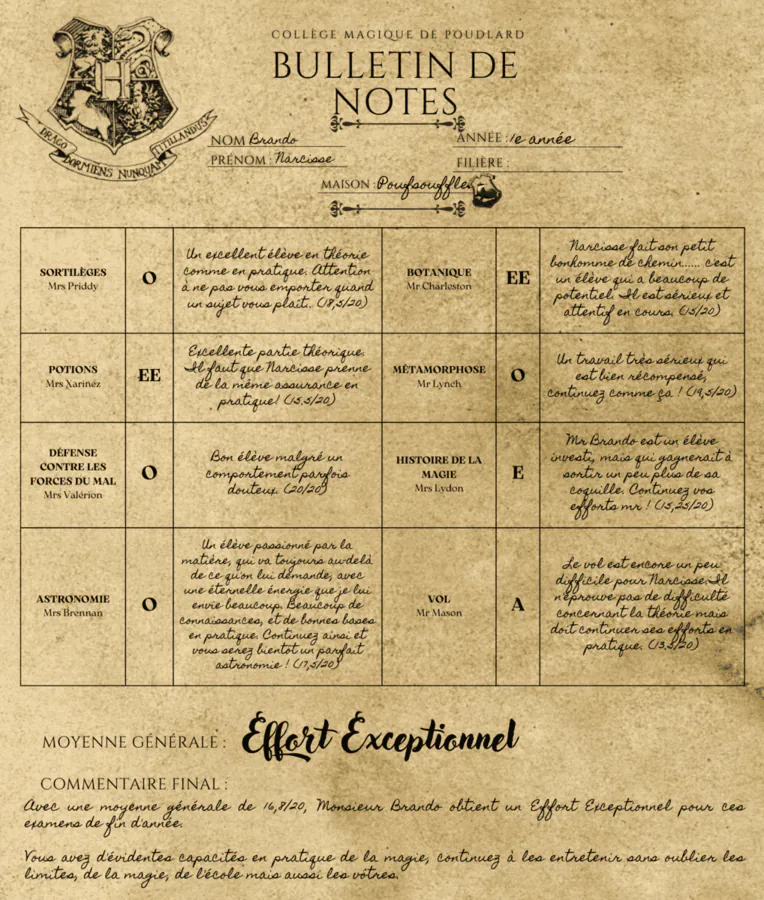 COLLÈGE MAGIQUE DE POUDLARD
BULLETIN DE
NOTES
DRACO DORMIENS NUNQUAM TITILLANDUS
NOM Brando
ANNÉE : 1e année
PRÉNOM : Narcisse
FILIÈRE :
MAISON : Poufsouffle
SORTILÈGES
Mrs Priddy
O
Un excellent élève en théorie
comme en pratique. Attention
à ne pas vous emporter quand
un sujet vous plaît. (18,5/20)
BOTANIQUE
Mr Charleston
EE
Narcisse fait son petit
bonhomme de chemin..... c'est
un élève qui a beaucoup de
potentiel. Il est sérieux et
attentif en cours. (15/20)
POTIONS
Mrs Xarinez
EE
Excellente partie théorique.
Il faut que Narcisse prenne
de la même assurance en
pratique! (15,5/20)
MÉTAMORPHOSE
Mr Lynch
O
Un travail très sérieux qui
est bien récompensé,
continuez comme ça ! (19,5/20)
DÉFENSE
CONTRE LES
FORCES DU MAL
Mrs Valérion
O
Bon élève malgré un
comportement parfois
douteux. (20/20)
HISTOIRE DE LA
MAGIE
Mrs Lydon
E
Mr Brando est un élève
investi, mais qui gagnerait à
sortir un peu plus de sa
coquille. Continuez vos
efforts mr ! (15,25/20)
ASTRONOMIE
Mrs Brennan
O
Un élève passionné par la
matière, qui va toujours au-delà
de ce qu'on lui demande, avec
une éternelle énergie que je lui
envie beaucoup. Beaucoup de
connaissances, et de bonnes bases
en pratique. Continuez ainsi et
vous serez bientôt un parfait
astronomie ! (17,5/20)
VOL
Mr Mason
A
Le vol est encore un peu
difficile pour Narcisse. Il
n'éprouve pas de difficulté
concernant la théorie mais
doit continuer ses efforts en
pratique. (13,5/20)
MOYENNE GÉNÉRALE : Effort Exceptionnel
COMMENTAIRE FINAL :
Avec une moyenne générale de 16,8/20, Monsieur Brando obtient un Effort Exceptionnel pour ces
examens de fin d'année.
Vous avez d'évidentes capacités en pratique de la magie, continuez à les entretenir sans oublier les
limites, de la magie, de l'école mais aussi les vôtres.